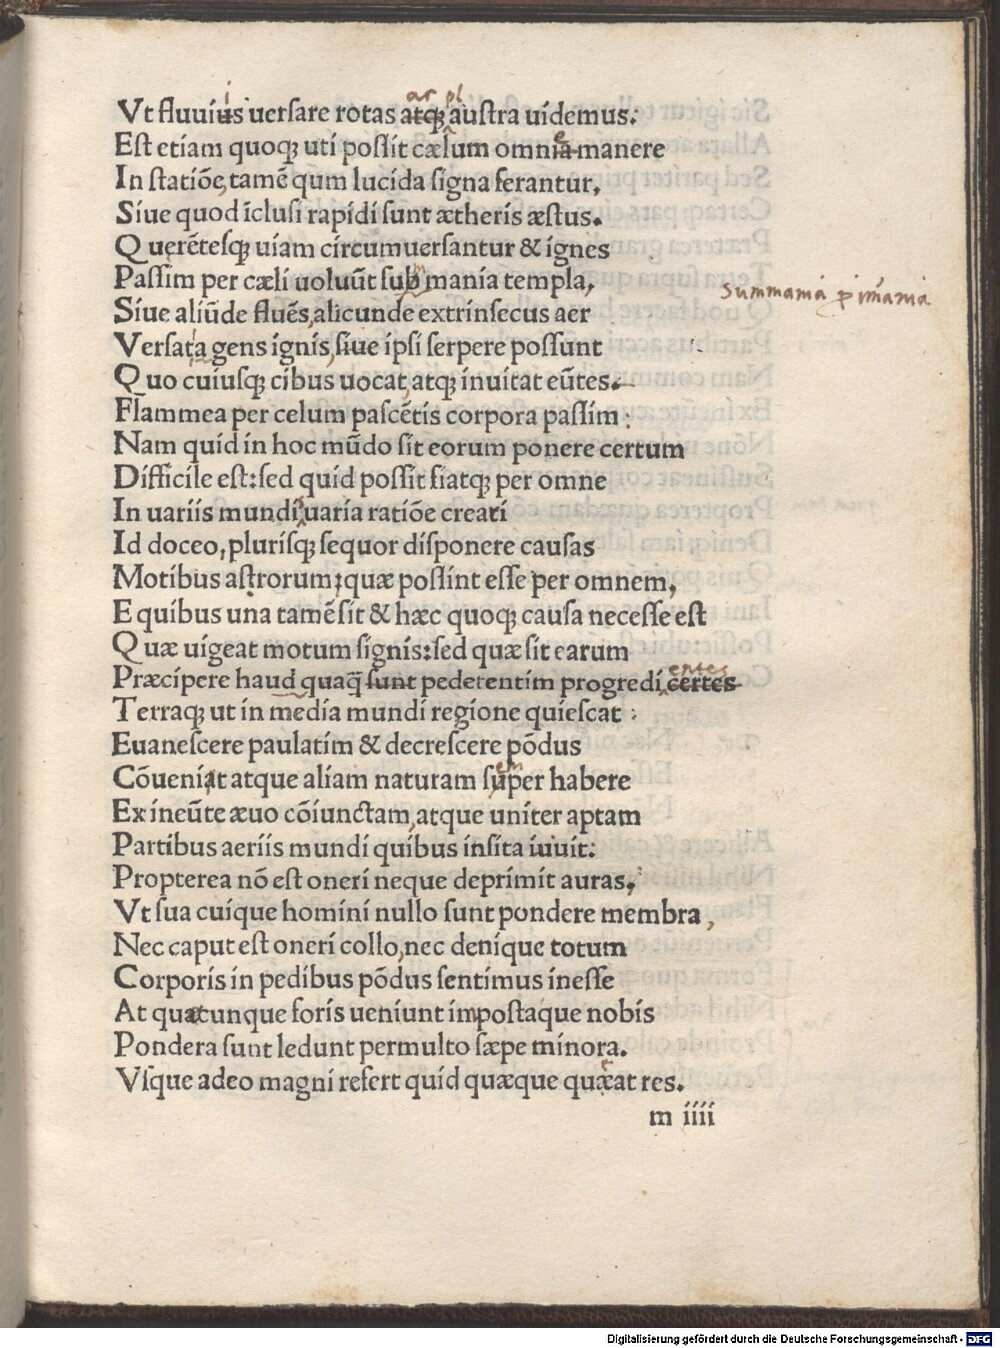 Vt fluuius uersare rotas atq; austra uidemus:
Est etiam quoq; uti possit cælum omnia manere
In statiōe, tamē qum lucida signa ferantur,
Siue quod īclusi rapidi sunt ætheris æstus.
Querētesq; uiam circumuersantur & ignes
Passim per cæli uoluūt sub mania templa,
summania p imania
Siue aliūde fluēs, alicunde extrinsecus aer
Versata gens ignis, siue ipsi serpere possunt
Quo cuiusq; cibus uocat, atq; inuitat eūtes.
Flammea per celum pascētis corpora passim:
Nam quid in hoc mūdo sit eorum ponere certum
Difficile est: sed quid possit fiatq; per omne
In uariis mundi uaria ratiōe creati
Id doceo, plurisq; sequor disponere causas
Motibus astrorum; quæ possint esse per omnem,
E quibus una tamē sit & hæc quoq; causa necesse est
Quæ uigeat motum signis: sed quæ sit earum
entes
Præcipere haud quaq̄ sunt pedetentim progredi certes
Terraq; ut in media mundi regione quiescat:
Euanescere paulatim & decrescere pōdus
Cōueniat atque aliam naturam super habere
Ex ineūte æuo cōiunctam, atque uniter aptam
Partibus aeriis mundi quibus insita iuiuit:
Propterea nō est oneri neque deprimit auras,
Vt sua cuique homini nullo sunt pondere membra,
Nec caput est oneri collo, nec denique totum
Corporis in pedibus pōdus sentimus inesse
At quæcunque foris ueniunt impostaque nobis
Pondera sunt ledunt permulto sæpe minora.
Vsque adeo magni refert quid quæque quæat res.
m iiii
Digitalisierung gefördert durch die Deutsche Forschungsgemeinschaft - DFG